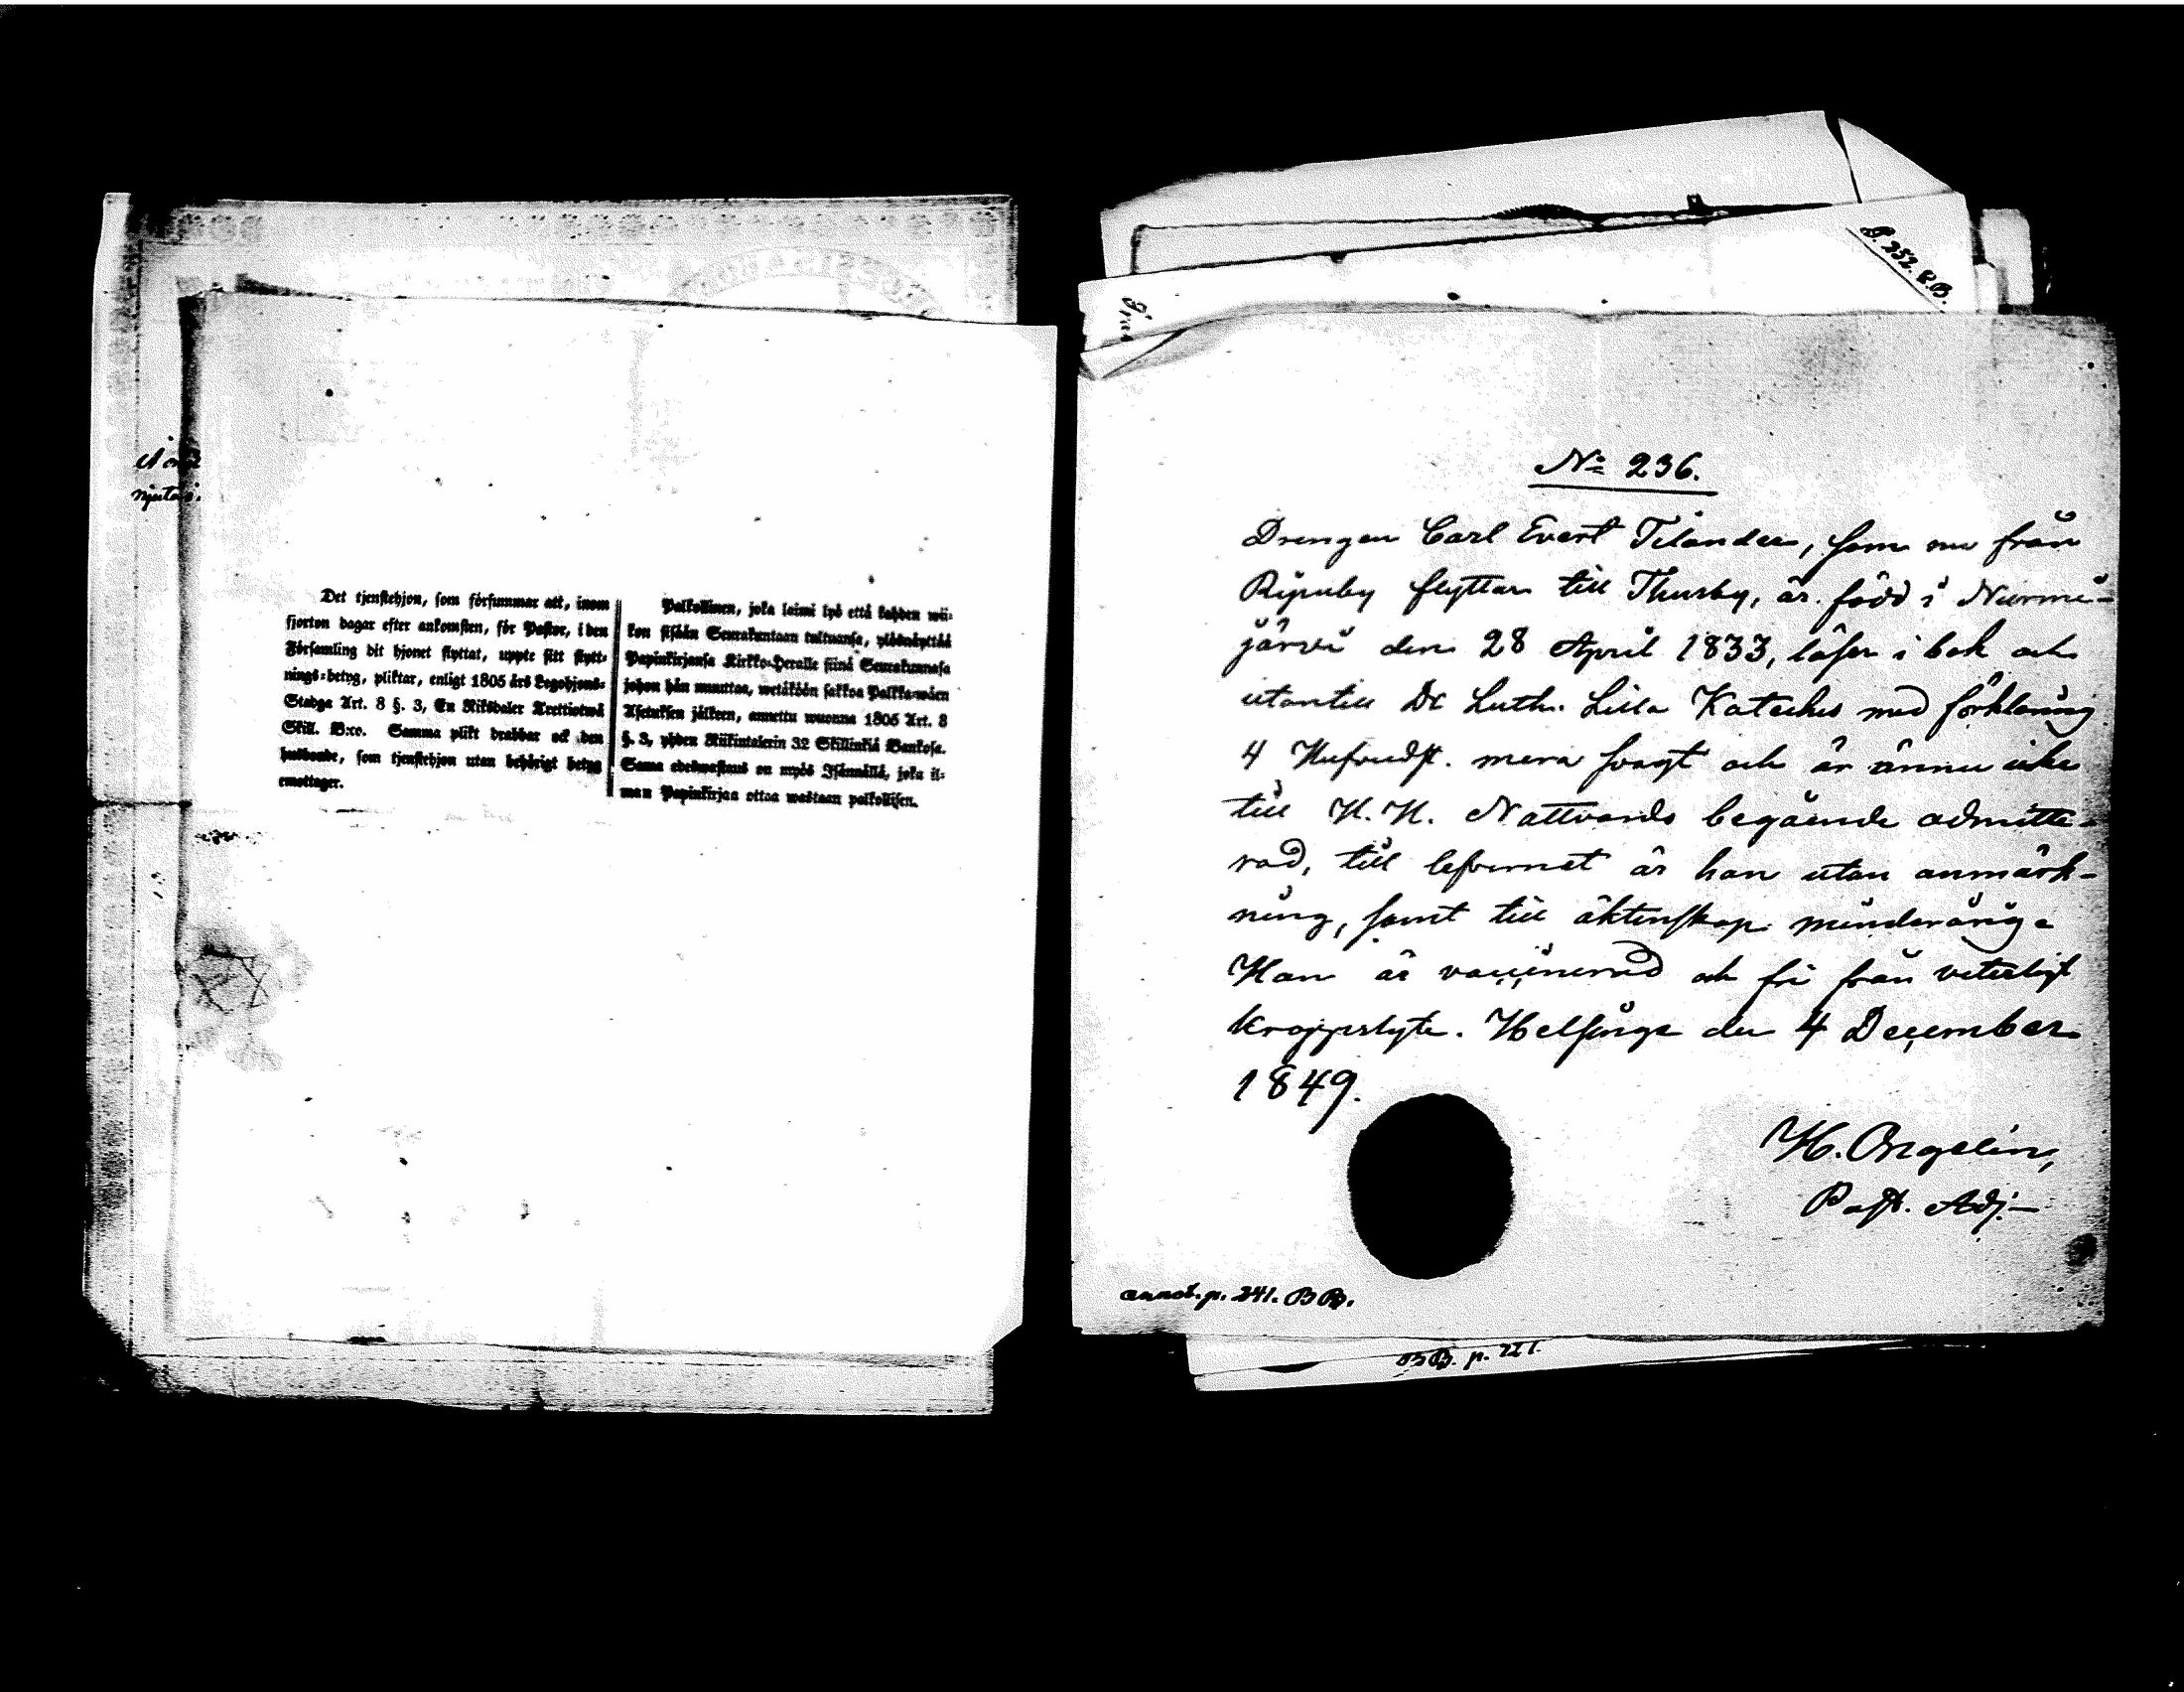 Det tjenstehjon, som försummar att, inom
fjorton dagar efter ankomsten, för Pastor, i den
Församling dit hjonet flyttat, uppte sitt flytt-
nings-betyg, pliktar, enligt 1805 års Legohjons-
Stadga Art. 8 §. 3, En Riksdaler Trettiotwå
Skill. B:co. Samma plikt drabbar ock den
husbonde, som tjenstehjon utan behörigt betyg
emottager.
Palkollinen, joka laimi lyö että kahden wii-
kon sisään Seurakuntaan tultuansa, ylösnäyttää
Papinkirjansa Kirkko-Heralle siinä Seurakunnasa
johon hän muuttaa, wetäköön sakkoa Palkka-wäen
Asetuksen jälkeen, annettu wuonna 1805 Art. 8
§. 3, yhden Riikintalerin 32 Skillinkiä Bankosa.
Sama edeswastaus on myös Isännällä, joka il-
man Papinkirjaa ottaa wastaan palkollisen.
P. 252. B.B.
No 236.
Drengen Carl Evert Tilander, som nu från
flyttar till Thusby, är född i Nurmi-
järvi den 28 April 1833, läser i bok och
utantill Dr Luth. Lilla Kateches med förklaring
4 Hufvudst. mera svagt och är ännu icke
till H.H. Nattvards begående admitte-
rad, till lefvernet är han utan anmärk-
ning, samt till äktenskap minderårig.
Han är vaccinerad och fri från veterligt
kroppslyte. Helsinge den 4 December
1849.
Past. Adj.
annot. p. 241. BB.
BB. p. 221.